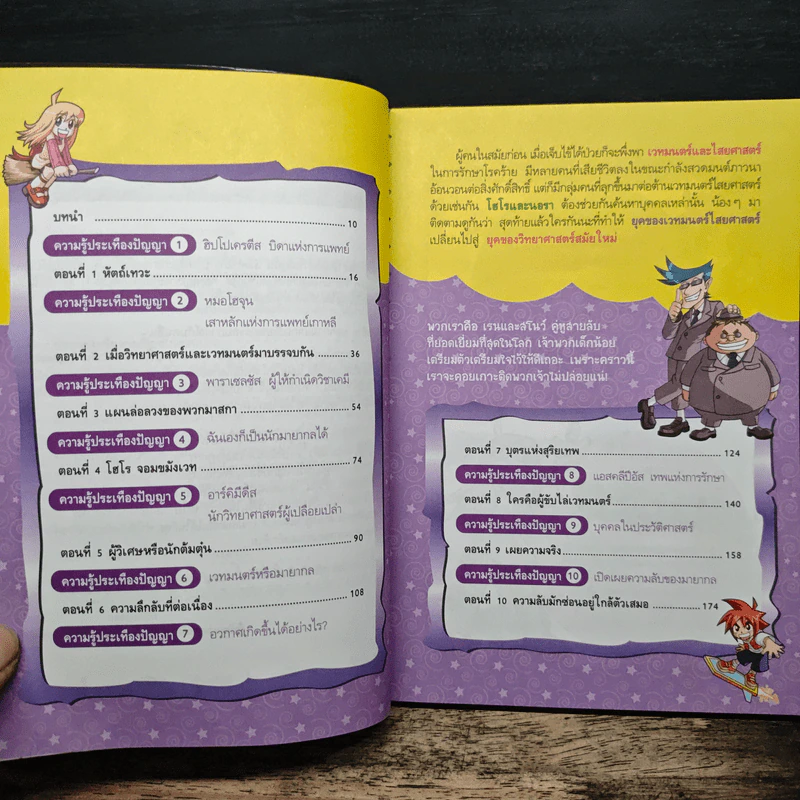 บทนำ ........ 10
ความรู้ประเทืองปัญญา 1 ฮิปโปเครตีส บิดาแห่งการแพทย์
ตอนที่ 1 หัตถ์เทวะ ........ 16
ความรู้ประเทืองปัญญา 2 หมอโฮจุน
เสาหลักแห่งการแพทย์เกาหลี
ตอนที่ 2 เมื่อวิทยาศาสตร์และเวทมนตร์มาบรรจบกัน ........ 36
ความรู้ประเทืองปัญญา 3 พาราเซลซัส ผู้ให้กำเนิดวิชาเคมี
ตอนที่ 3 แผนล่อลวงของพวกมาสกา ........ 54
ความรู้ประเทืองปัญญา 4 ฉันเองก็เป็นนักมายากลได้
ตอนที่ 4 โฮโร จอมขมังเวท ........ 74
ความรู้ประเทืองปัญญา 5 อาร์คิมิดีส
นักวิทยาศาสตร์ผู้เปลือยเปล่า
ตอนที่ 5 ผู้วิเศษหรือนักต้มตุ๋น ........ 90
ความรู้ประเทืองปัญญา 6 เวทมนตร์หรือมายากล
ตอนที่ 6 ความลึกลับที่ต่อเนื่อง ........ 108
ความรู้ประเทืองปัญญา 7 อวกาศเกิดขึ้นได้อย่างไร?
ผู้คนในสมัยก่อน เมื่อเจ็บไข้ได้ป่วยก็จะพึ่งพา เวทมนตร์และไสยศาสตร์
ในการรักษาโรคร้าย มีหลายคนที่เสียชีวิตลงในขณะกำลังสวดมนต์ภาวนา
อ้อนวอนต่อสิ่งศักดิ์สิทธิ์ แต่ก็มีกลุ่มคนที่ลุกขึ้นมาต่อต้านเวทมนตร์ไสยศาสตร์
ด้วยเช่นกัน โฮโรและนอรา ต้องช่วยกันค้นหาบุคคลเหล่านั้น น้องๆ มา
ติดตามดูกันว่า สุดท้ายแล้วใครกันนะที่ทำให้ ยุคของเวทมนตร์ไสยศาสตร์
เปลี่ยนไปสู่ ยุคของวิทยาศาสตร์สมัยใหม่
พวกเราคือ เรนและสโนว์ คู่หูสายลับ
ที่ยอดเยี่ยมที่สุดในโลก เจ้าพวกเด็กน้อย
เตรียมตัวเตรียมใจไว้ให้ดีเถอะ เพราะคราวนี้
เราจะคอยเกาะติดพวกเจ้าไม่ปล่อยแน่!
ตอนที่ 7 บุตรแห่งสุริยเทพ ........ 124
ความรู้ประเทืองปัญญา 8 แอสคลีปิอัส เทพแห่งการรักษา
ตอนที่ 8 ใครคือผู้ขับไล่เวทมนตร์ ........ 140
ความรู้ประเทืองปัญญา 9 บุคคลในประวัติศาสตร์
ตอนที่ 9 เผยความจริง ........ 158
ความรู้ประเทืองปัญญา 10 เปิดเผยความลับของมายากล
ตอนที่ 10 ความลับมักซ่อนอยู่ใกล้ตัวเสมอ ........ 174